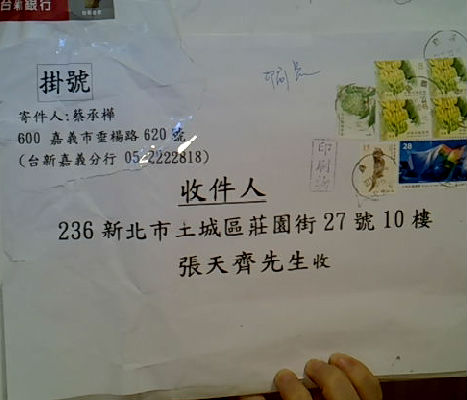 台新銀行
掛號
寄件人:蔡承樺
600 嘉義市垂楊路 620 號
(台新嘉義分行 05-2222818)
印刷物
28
收件人
236 新北市土城區莊園街 27 號 10 樓
張天齊先生收